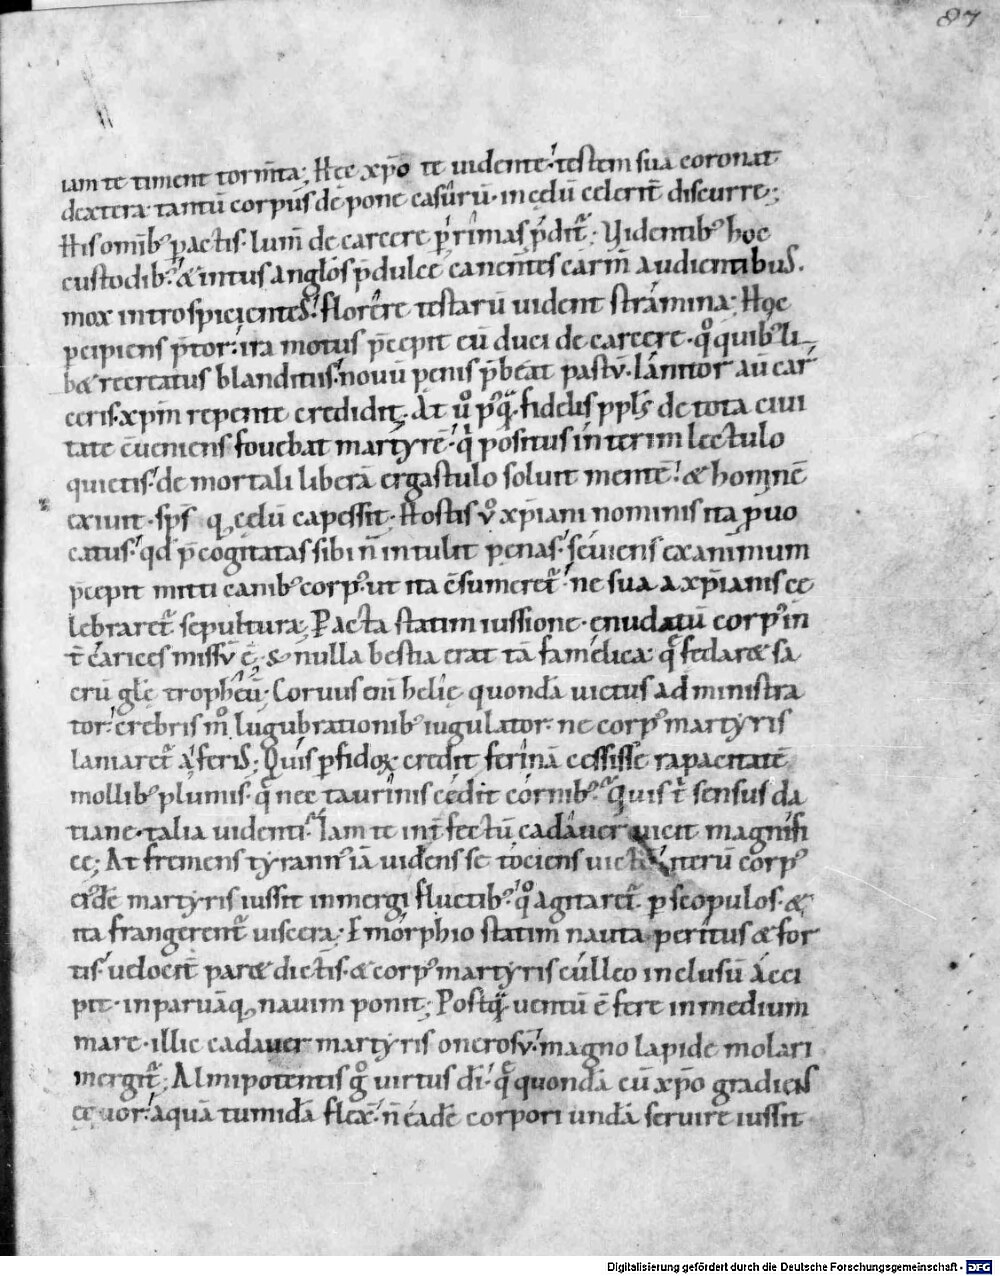 87
iam te timent torm̄ta; Hęc xp̄o te uidente· testem sua coronat
dextera· tantū corpus depone casurū· in cędū celerit̄ discurre;
His omīb; pactis· lum̄ de carcere p rimas p̄dit᷑· Uidentib; hoc
custodib;· & intus anglos p̄dulce canentes carm̄ audientibus·
mox introspicientes· florere testarū uident stramina; Hęc
pcipiens p̄tor· ira motus p̄cepit eū duci de carcere· qͦ quib; li-
b& recreatus blanditus· nouū penis p̄beat pastū· Ianitor aū car
ceris· xp̄m repente credidit; At uͦ p; q̄· fidelis ppl̄s de tota ciui
tate c̄ueniens fouebat martyrē· q positus interim lectulo
quietis· de mortali liberā ergastulo soluit mentē· & hominē
exiuit· sp̄s q; cędū capessit; Hostis uͦ xp̄iani nominis ita puo
catus· qd p̄cogitatas sibi n̄ intulit penas· seuiens exanimum
p̄cepit mitti canib; corp;· ut ita c̄sumeret᷑· ne sua a xp̄ianis ce
lebraret᷑ sepultura; Facta statim iussione· enudatū corp; in
t̄ carices missū ē; S; nulla bestia erat tā famelica· q̄ fedar& sa
crū glę tropheū; Coruus eni helię quondā uictus administra
tor· crebris mͦ lugubrationib; iugulator· ne corp; martyris
laniaret᷑ a feris; Quis pfidoꝝ credit ferinā cessisse rapacitatē
mollib; plumis· q̄ nec taurinis cedit cornib;· Quis t sensus da
tiane· talia uidenti· Iam te int̄fectū cadauer uicit magnifi
ce; At fremens tyrann; iā uidens se tociens uictū iterū corp;
eidē martyris iussit inmergi fluctib;· qͦ agitaret᷑ p scopulos· &
ita frangerent᷑ uiscera; Emorphio statim nauta peritus & for
tis· uelocit̄ par& dictis· & corp; martyris culleo inclusū acci
pit· in paruāq; nauim ponit; Postq̄ uentū ē fere in medium
mare· illic cadauer martyris onerosū· magno lapide molari
mergit᷑; Almipotentis gͦ uirtus dī· q̄ quondā cū xp̄o gradiens
ęquor· aquā tumidā flexᷓ· n̄ eadē corpori undā seruire iussit
Digitalisierung gefördert durch die Deutsche Forschungsgemeinschaft - DFG